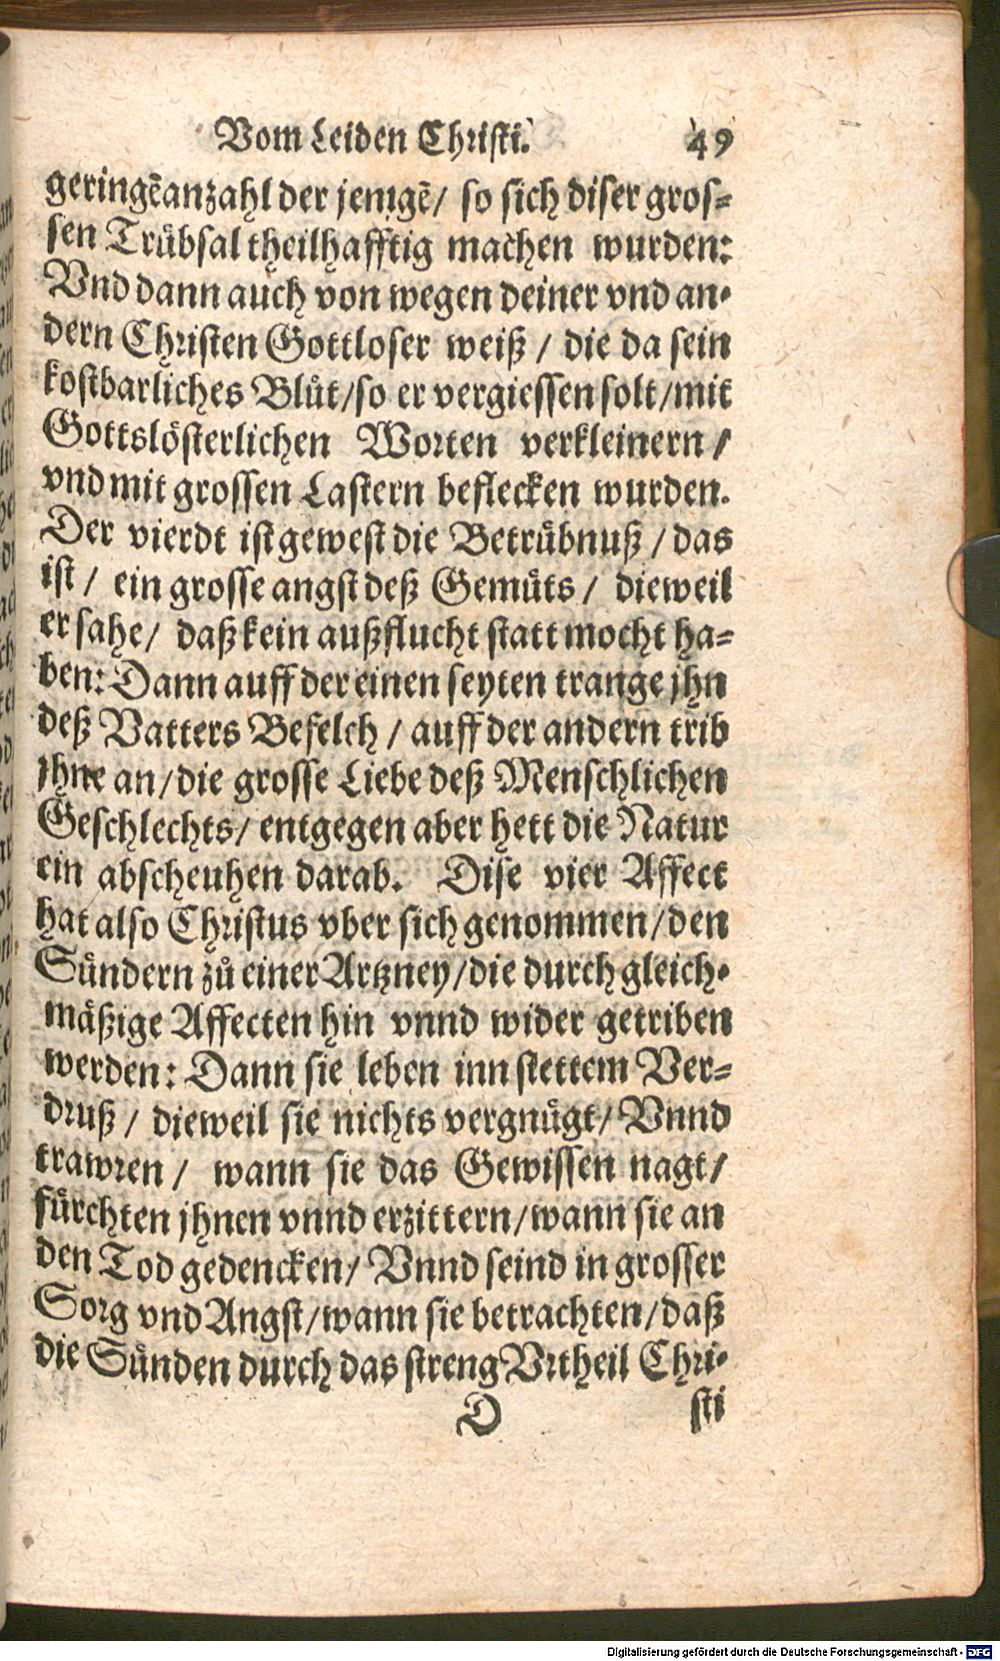 Vom Leiden Christi. 49
geringẽ anzahl der jenigẽ / so sich diser gros-
sen Trübsal theilhafftig machen wurden:
Vnd dann auch von wegen deiner vnd an-
dern Christen Gottloser weiß / die da sein
kostbarliches Blůt / so er vergiessen solt / mit
Gottslösterlichen Worten verkleinern /
vnd mit grossen Lastern beflecken wurden.
Der vierdt ist gewest die Betrübnuß / das
ist / ein grosse angst deß Gemüts / dieweil
er sahe / daß kein außflucht statt mocht ha-
ben: Dann auff der einen seyten trange jhn
deß Vatters Befelch / auff der andern trib
jhne an / die grosse Liebe deß Menschlichen
Geschlechts / entgegen aber hett die Natur
ein abscheuhen darab. Dise vier Affect
hat also Christus vber sich genommen / den
Sündern zů einer Artzney / die durch gleich-
mäßige Affecten hin vnnd wider getriben
werden: Dann sie leben inn stettem Ver-
druß / dieweil sie nichts vergnügt / Vnnd
trawren / wann sie das Gewissen nagt /
fürchten jhnen vnnd erzittern / wann sie an
den Tod gedencken / Vnnd seind in grosser
Sorg vnd Angst / wann sie betrachten / daß
die Sünden durch das streng Vrtheil Chri-
D sti
Digitalisierung gefördert durch die Deutsche Forschungsgemeinschaft - DFG